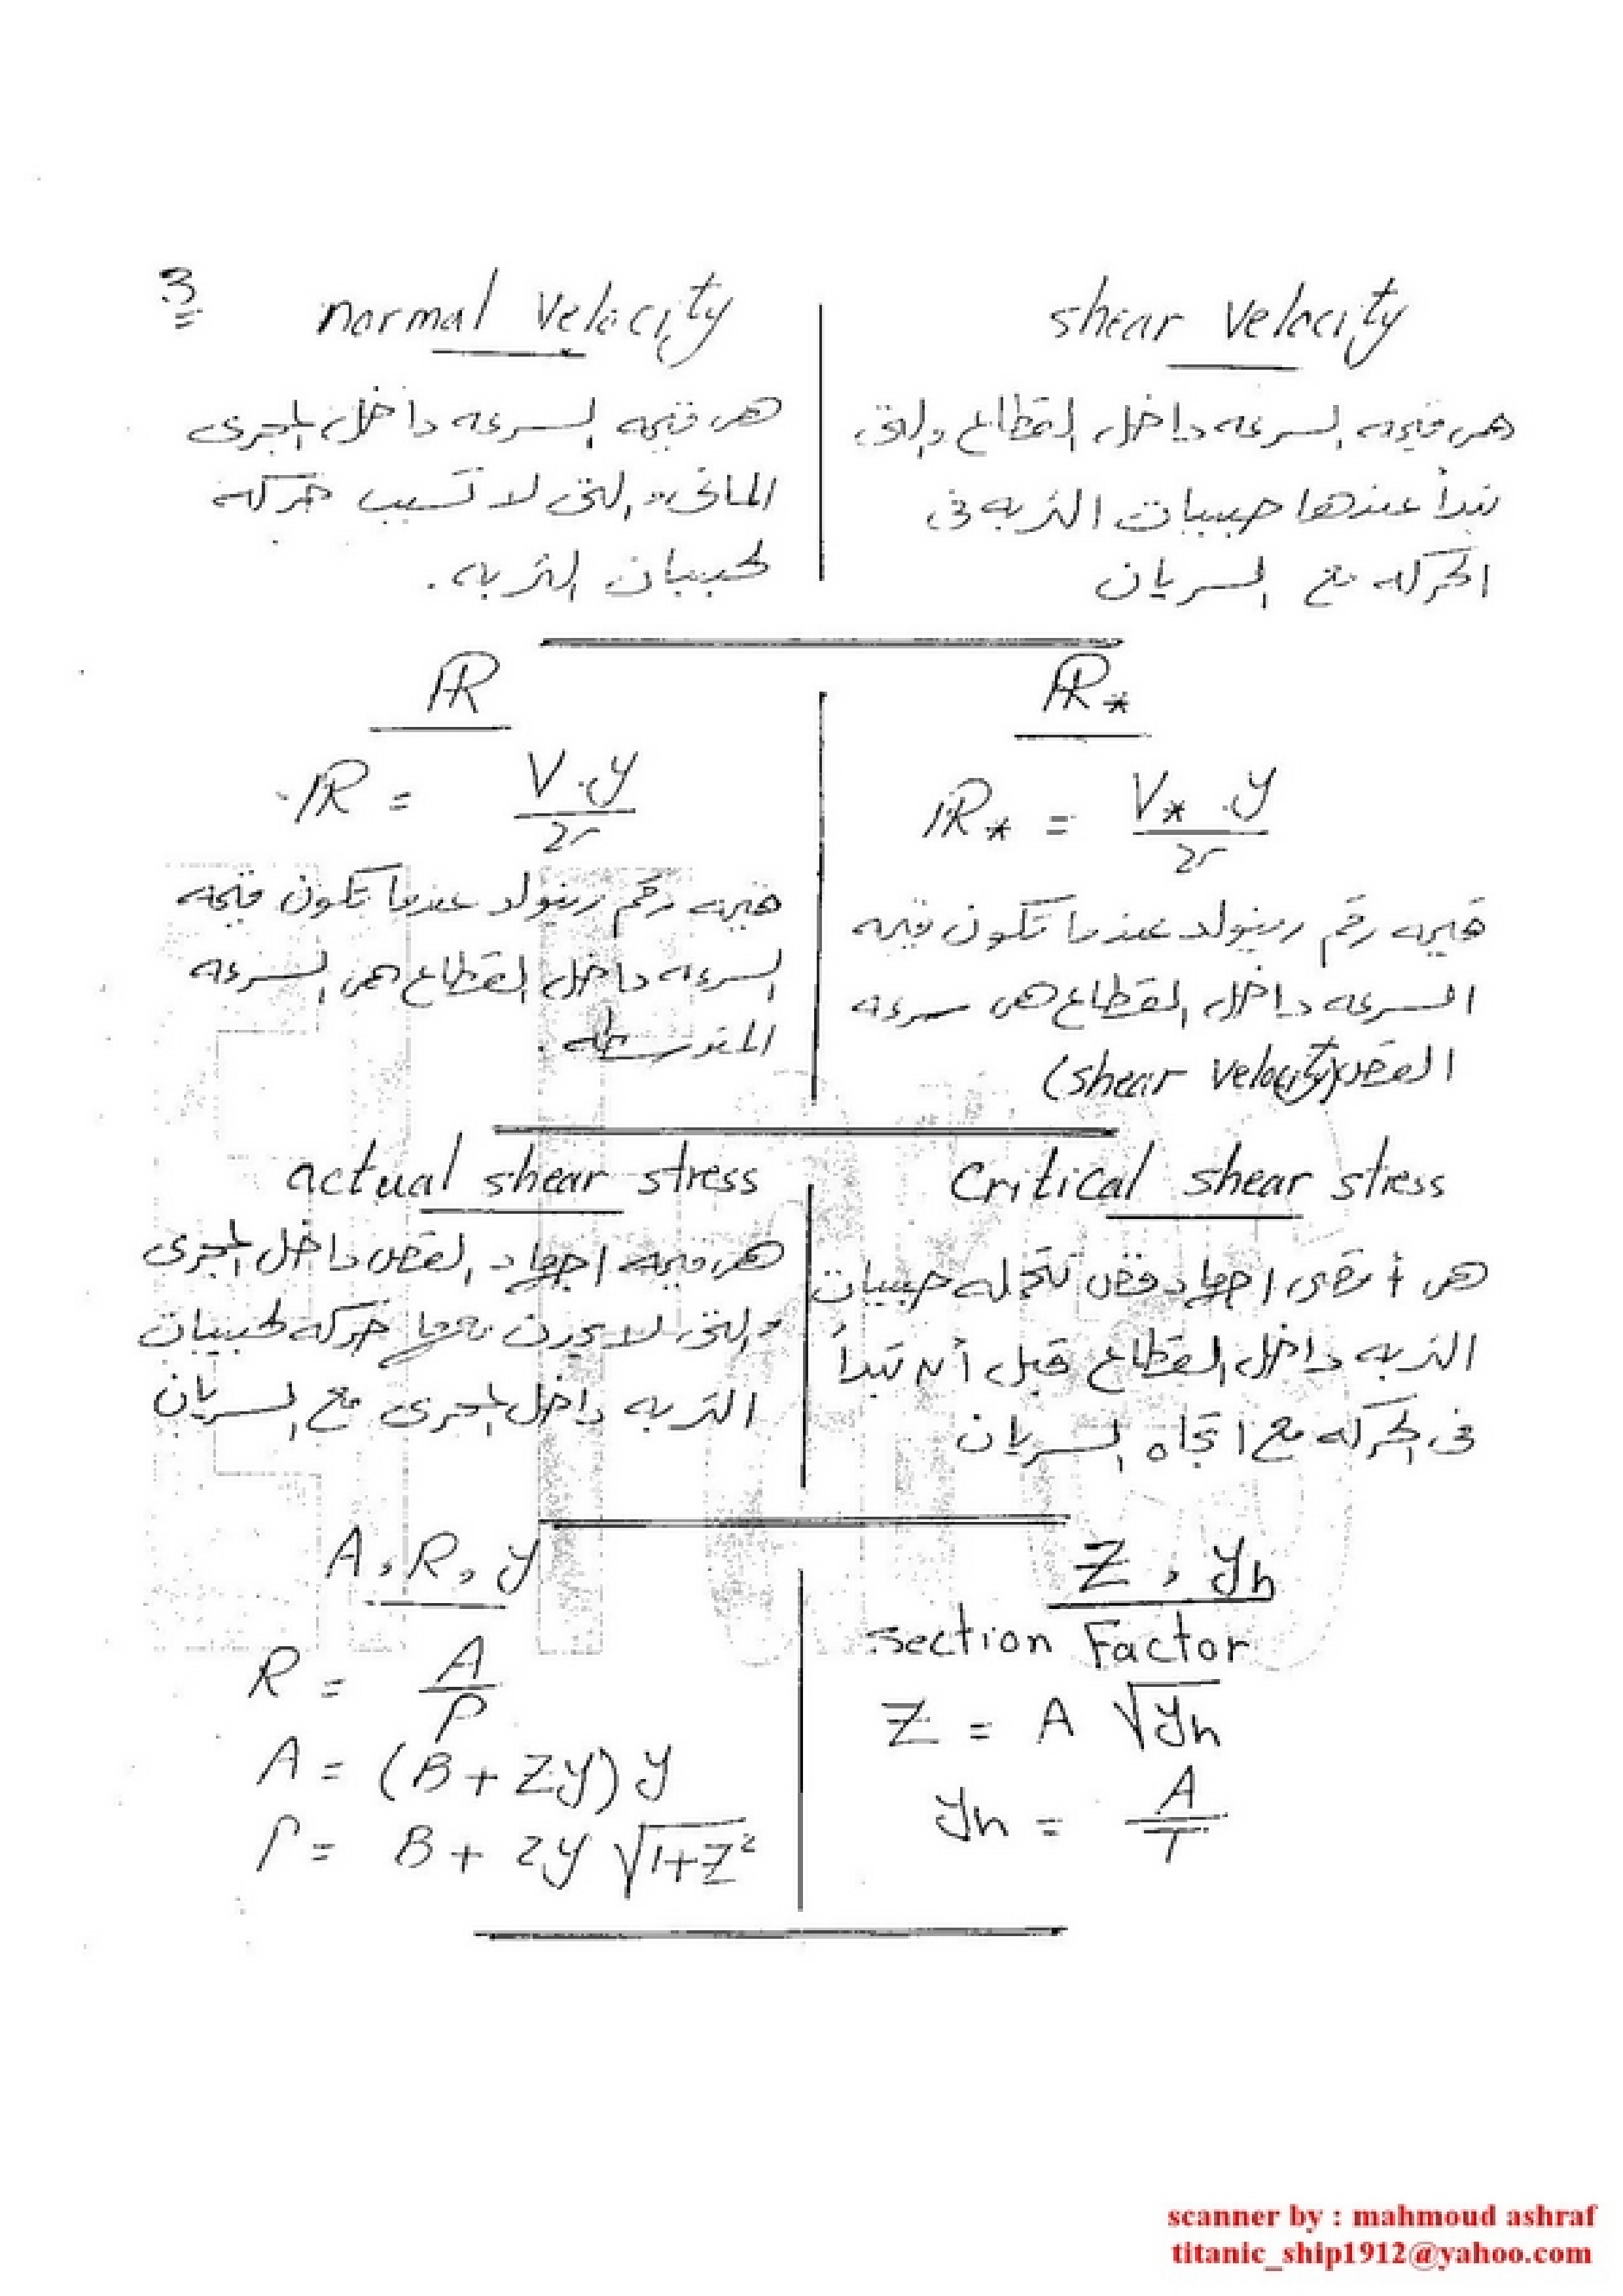 3
normal velocity
هى قيمه السرعه داخل المجرى
المائى و التى لا تسبب حركه
لحبيبات التربه.
shear velocity
هى قيمه السرعه داخل القطاع والتى
تبدأ عندها حبيبات التربه فى
الحركه مع السريان
IR
IR = V.y / ν
قيمه رقم رينولد عندما تكون قيمه
السرعه داخل القطاع هى السرعه
المتوسطه.
IR*
IR* = V* .y / ν
قيمه رقم رينولد عندما تكون قيمه
السرعه داخل القطاع هى سرعه
القص (shear velocity)
actual shear stress
هى قيمه اجهاد القص داخل المجرى
والتى لا يحدث معها حركه لحبيبات
التربه داخل المجرى مع السريان
Critical shear stress
هى أقصى اجهاد قص تتحمله حبيبات
التربه داخل القطاع قبل أن تبدأ
فى الحركه مع اتجاه السريان
A, R, y
R = A / P
A = (B + Zy) y
P = B + 2y √1+Z²
Z, yh
section Factor
Z = A √yh
yh = A / T
scanner by : mahmoud ashraf
titanic_ship1912@yahoo.com